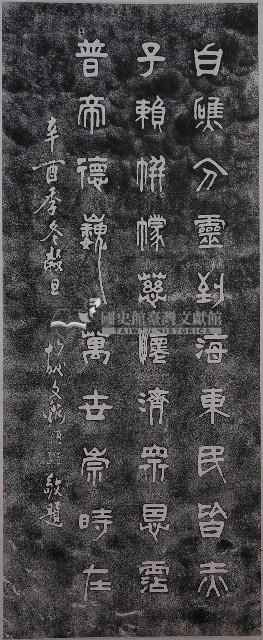 白礁分靈到海東民皆赤
子賴帡幪慈濟眾恩霑
普帝德巍萬世崇時在
辛酉季冬穀旦
文 敬題
國史館臺灣文獻館
TAIWAN HISTORICA